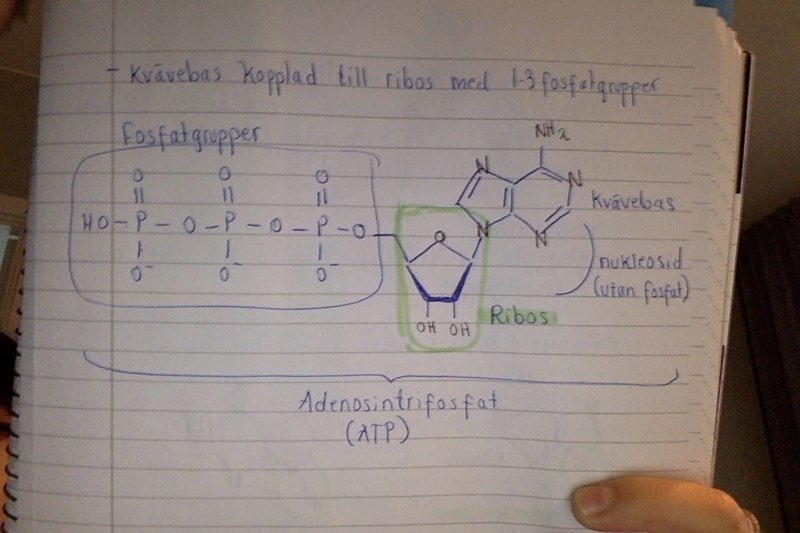 - Kvävebas kopplad till ribos med 1-3 fosfatgrupper
Fosfatgrupper
NH2
O O O
N N
HO-P-O-P-O-P-O
Kvävebas
O
N N
O- O- O-
nukleosid
(utan fosfat)
OH OH
Ribos
Adenosintrifosfat
(ATP)